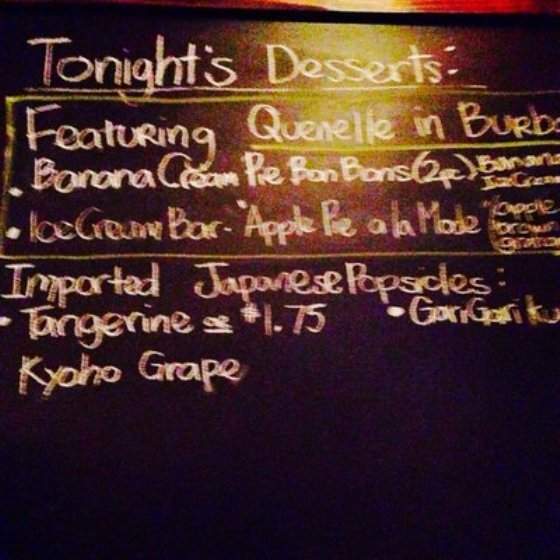 Tonight's Desserts:
Featuring Quenelle in Burb
• Banana Cream Pie Bon Bons (2pc)
• Ice Cream Bar - "Apple Pie a la Mode"
Imported Japanese Popsicles:
• Tangerine $1.75 • GariGari
Kyoho Grape